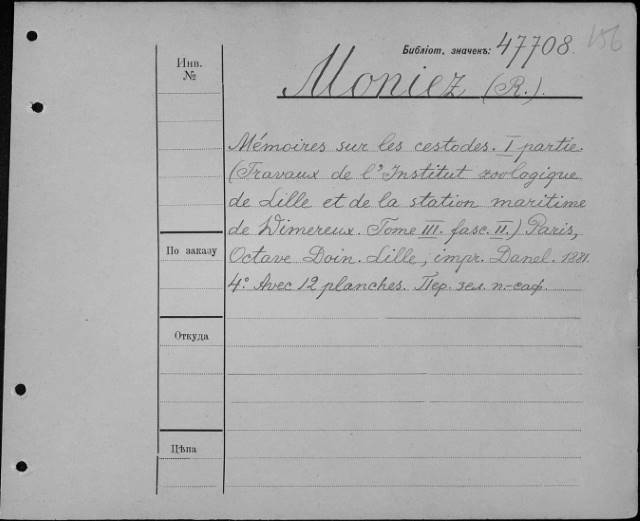 Библіот. значекъ: 47708. 156
Инв. №
Moniez (R.).
Mémoires sur les cestodes. I partie.
(Travaux de l'Institut zoologique
de Lille et de la station maritime
de Wimereux. Tome III. fasc. II.) Paris,
По заказу
Octave Doin. Lille, impr. Danel. 1881.
4º. Avec 12 planches. Пер. зел. п.-саф.
Откуда
Цѣна